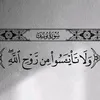 سورة يوسف
﴿وَلَا تَا۟يْـَٔسُوا۟ مِن رَّوْحِ ٱللَّهِ﴾